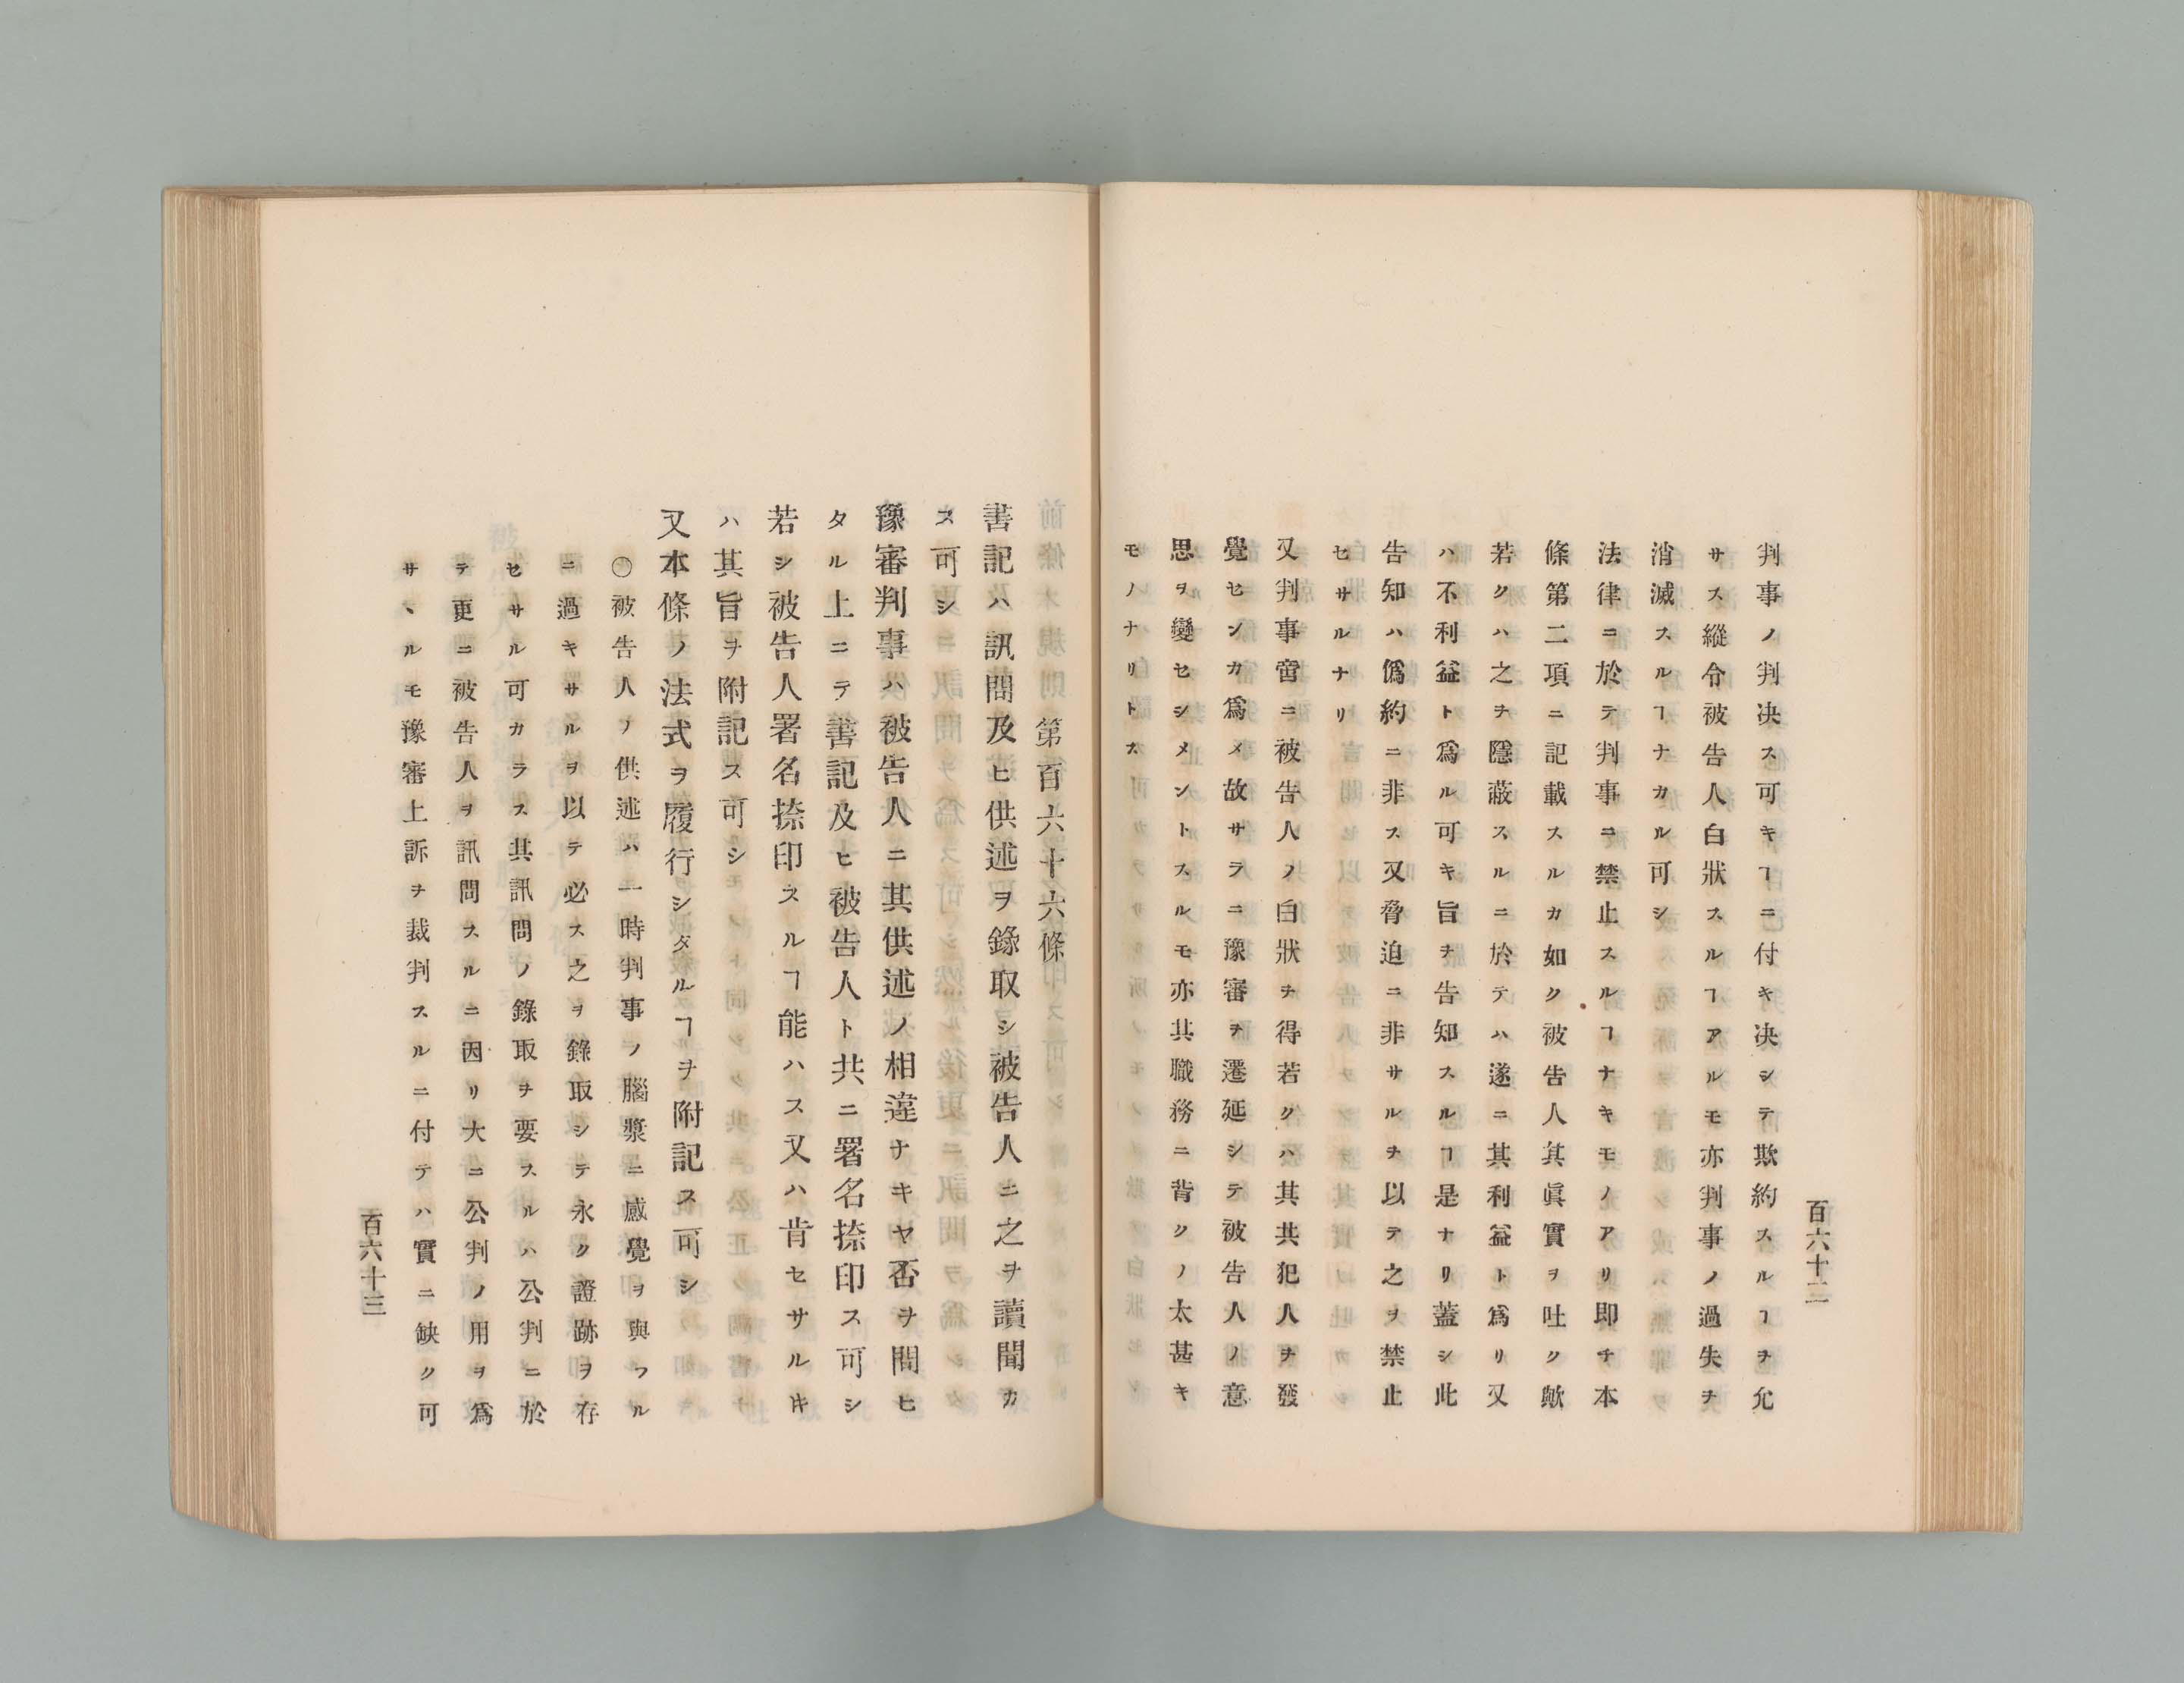 百六十二
判事ノ判决ス可キヿニ付キ决シテ可欺約スルヿヲ允
サス縱令被告人白狀スルヿアルモ亦判事ノ過失ヲ
消滅スルヿナカル可シ
法律ニ於テ判事ニ禁止スルヿナキモノアリ即チ本
條第二項ニ記載スルカ如ク被告人其眞實ヲ吐ク歟
若クハ之ヲ隱蔽スルニ於テハ遂ニ其利益ト爲リ又
ハ不利益ト爲ル可キ旨ヲ告知スルヿ是ナリ蓋シ此
告知ハ僞約ニ非ス又脅迫ニ非サルヲ以テ之ヲ禁止
セサルナリ
又判事啻ニ被告人ノ白狀ヲ得若クハ其共犯人ヲ發
覺センカ爲メ故サラニ豫審ヲ遷延シテ被告人ノ意
思ヲ變セシメントスルモ亦其職務ニ背クノ太甚キ
モノナリトス
第百六十六條
書記ハ訊問及ヒ供述ヲ錄取シ被告人ニ之ヲ讀聞カ
ス可シ
豫審判事ハ被告人ニ其供述ノ相違ナキヤ否ヲ問ヒ
タル上ニテ書記及ヒ被告人ト共ニ署名捺印ス可シ
若シ被告人署名捺印スルヿ能ハス又ハ肯セサルキ
ハ其旨ヲ附記ス可シ
又本條ノ法式ヲ履行シタルヿヲ附記ス可シ
〇被告人ノ供述ハ一時判事ノ腦漿ニ感覺ヲ與フル
ニ過キサルヲ以テ必ス之ヲ錄取シテ永ク證跡ヲ存
セサル可カラス其訊問ノ錄取ヲ要スルハ公判ニ於
テ更ニ被告人ヲ訊問スルニ因リ大ニ公判ノ用ヲ爲
サヽルモ豫審上訴ヲ裁判スルニ付テハ實ニ缺ク可
百六十三